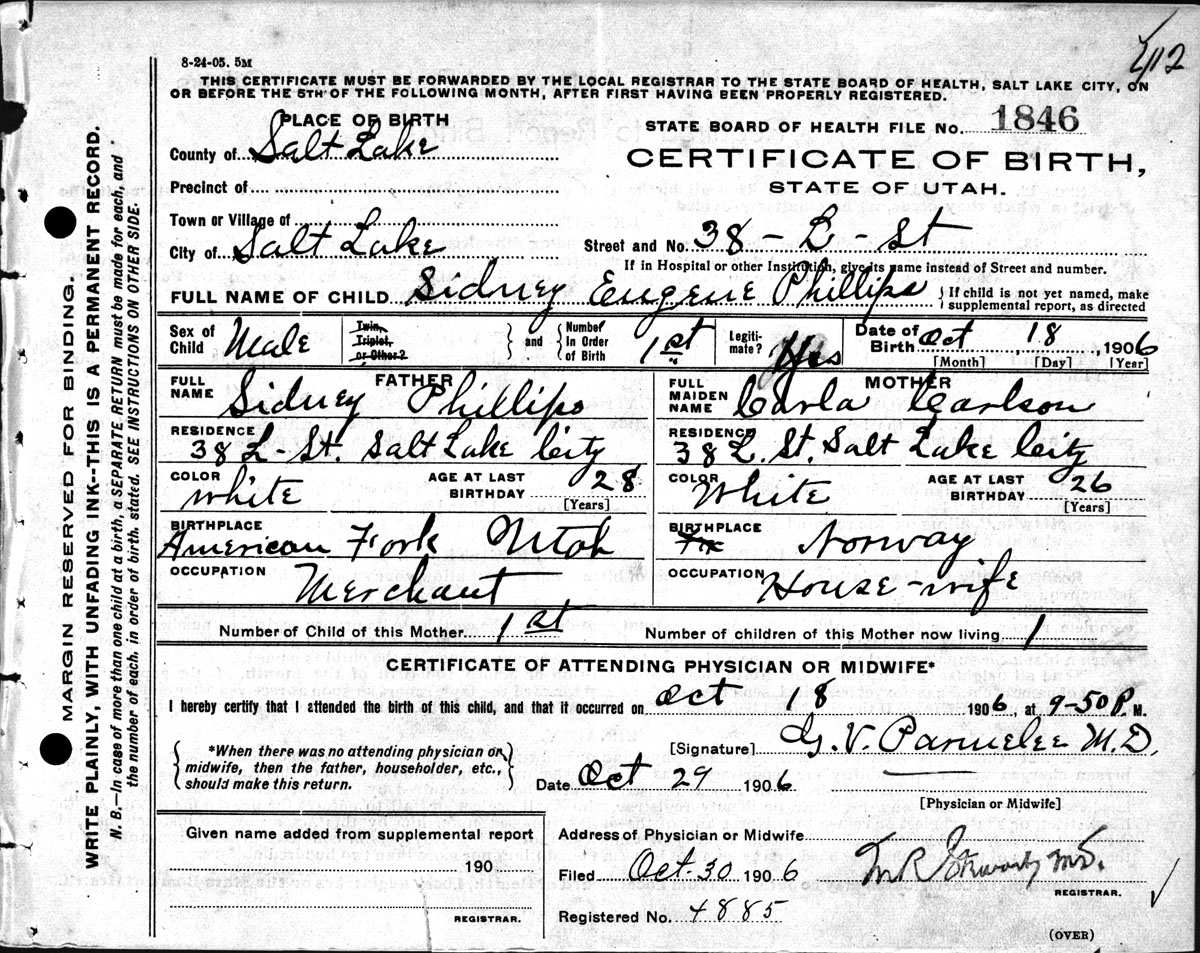 412
8-24-05. 5M
THIS CERTIFICATE MUST BE FORWARDED BY THE LOCAL REGISTRAR TO THE STATE BOARD OF HEALTH, SALT LAKE CITY, ON
OR BEFORE THE 5TH OF THE FOLLOWING MONTH, AFTER FIRST HAVING BEEN PROPERLY REGISTERED.
PLACE OF BIRTH
STATE BOARD OF HEALTH FILE NO. 1846
County of Salt Lake
CERTIFICATE OF BIRTH,
Precinct of
STATE OF UTAH.
Town or Village of
City of Salt Lake Street and No. 38 - L - St
If in Hospital or other Institution, give its name instead of Street and number.
FULL NAME OF CHILD Sidney Eugene Phillips { If child is not yet named, make
supplemental report, as directed
Sex of Child Male Twin, Triplet, or Other? } and { Number In Order of Birth 1st Legiti-mate? Yes Date of Birth Oct 18, 1906
[Month] [Day] [Year]
FATHER
FULL NAME Sidney Phillips
RESIDENCE 38 L-St. Salt Lake City
COLOR white AGE AT LAST BIRTHDAY 28
[Years]
BIRTHPLACE American Fork Utah
OCCUPATION Merchant
MOTHER
FULL MAIDEN NAME Carla Carlson
RESIDENCE 38 L. St. Salt Lake City
COLOR White AGE AT LAST BIRTHDAY 26
[Years]
BIRTHPLACE Norway
OCCUPATION House-wife
Number of Child of this Mother 1st Number of children of this Mother now living 1
CERTIFICATE OF ATTENDING PHYSICIAN OR MIDWIFE*
I hereby certify that I attended the birth of this child, and that it occurred on Oct 18 1906, at 9-50 P. M.
{ *When there was no attending physician or
midwife, then the father, householder, etc.,
should make this return. }
[Signature] G. V. Parmelee M.D.
Date Oct 29 1906
[Physician or Midwife]
Given name added from supplemental report
190
REGISTRAR.
Address of Physician or Midwife
Filed Oct-30 1906 M.D.
REGISTRAR.
Registered No. 4885
(OVER)
MARGIN RESERVED FOR BINDING.
WRITE PLAINLY, WITH UNFADING INK--THIS IS A PERMANENT RECORD.
N. B.—In case of more than one child at a birth, a SEPARATE RETURN must be made for each, and
the number of each, in order of birth, stated. SEE INSTRUCTIONS ON OTHER SIDE.